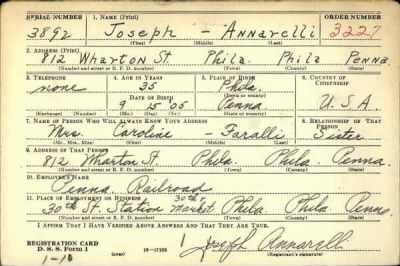 SERIAL NUMBER 1. NAME (Print) ORDER NUMBER
3892 Joseph - Annarelli 3227
(First) (Middle) (Last)
2. ADDRESS (Print)
812 Wharton St. Phila. Phila Penna
(Number and street or R. F. D. number) (Town) (County) (State)
3. TELEPHONE 4. AGE IN YEARS 5. PLACE OF BIRTH 6. COUNTRY OF CITIZENSHIP
none 35 Phila.
DATE OF BIRTH (Town or county)
9 15 05 Penna. U.S.A.
(Mo.) (Day) (Yr.) (State or country)
7. NAME OF PERSON WHO WILL ALWAYS KNOW YOUR ADDRESS 8. RELATIONSHIP OF THAT PERSON
Mrs. Caroline - Faralli Sister
(Mr., Mrs., Miss) (First) (Middle) (Last)
9. ADDRESS OF THAT PERSON
812 Wharton St. Phila. Phila. Penna.
(Number and street or R. F. D. number) (Town) (County) (State)
10. EMPLOYER'S NAME
Penna. Railroad
11. PLACE OF EMPLOYMENT OR BUSINESS
30th St. Station 30th & Market Phila. Phila. Penna
(Number and street or R. F. D. number) (Town) (County) (State)
I AFFIRM THAT I HAVE VERIFIED ABOVE ANSWERS AND THAT THEY ARE TRUE.
REGISTRATION CARD
D. S. S. Form 1 (over) 16-17105 Joseph Annarelli
1-10 (Registrant's signature)